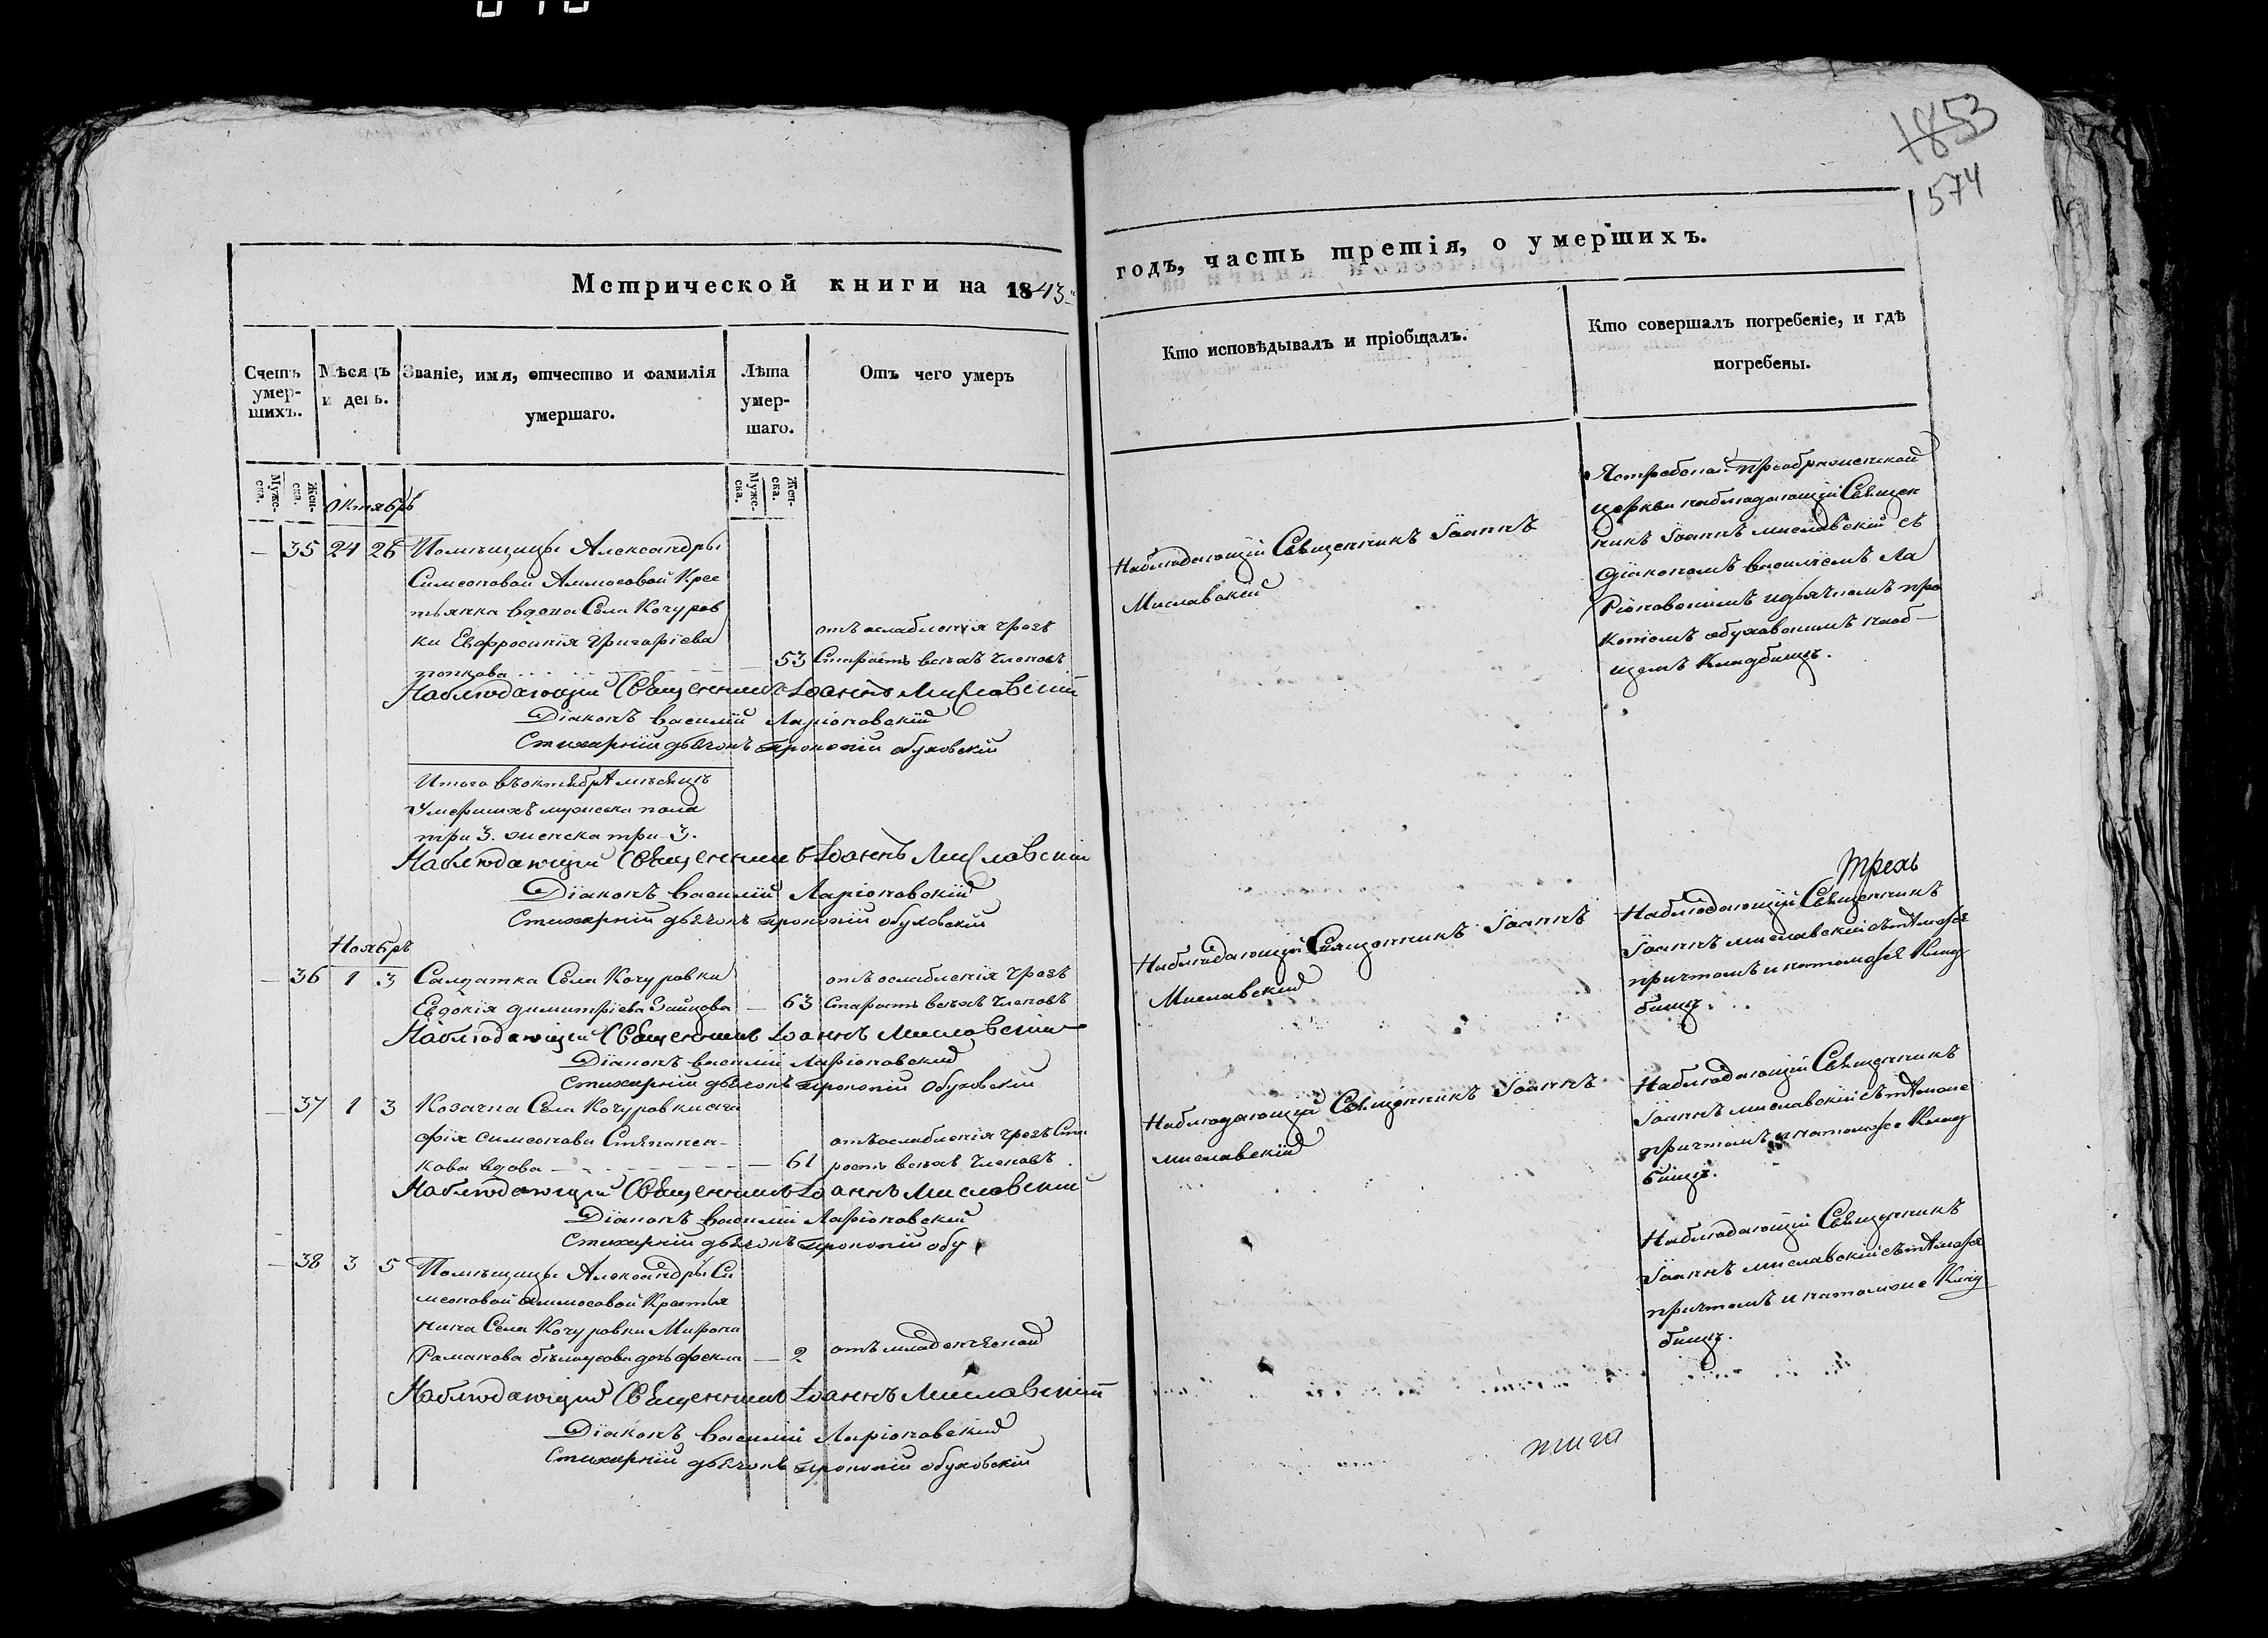 1853
574
Метрической книги на 1843
годъ, часть третія, о умершихъ.
Счетъ умер-шихъ.
Мѣсяцъ и день.
Званіе, имя, отчество и фамилія умершаго.
Лѣта умер-шаго.
Отъ чего умеръ
Кто исповѣдывалъ и пріобщалъ.
Кто совершалъ погребеніе, и гдѣ погребены.
Мужс-ска.
Жен-ска.
Мужс-ска.
Жен-ска.
Октябрь
— 35 24 26 Помѣщицы Александры
Симеоновой Аммосовой Крес
тьянка вдова Села Кочуров
ки Евфросинія Григоріева
попкова
отъ ослабленія чрезъ
53 Старость всѣхъ членовъ
Наблюдающій Священникъ Іоаннъ
Миславскій
Ястребской Преображенской
церкви наблюдающій Священ
никъ Іоаннъ миславскій съ
Діакономъ василіемъ Ла
ріоновскимъ и дьячкомъ про
копіемъ обуховскимъ на об-
щемъ Кладбищѣ.
Наблюдающій Священникъ Іоаннъ Миславскій
Діаконъ Василій Ларіоновскій
Стихарній дьячокъ прокопій обуховскій
Итого въ октябрѣ мѣсяцѣ
Умершихъ мужеска пола
три 3. женска три 3.
Наблюдающій Священникъ Іоаннъ Миславскій
Діаконъ Василій Ларіоновскій
Стихарній дьячокъ прокопій обуховскій
Трехъ
Ноябрь
— 36 1 3 Салдатка Села Кочуровки
Евдокія димитріева Зайцова — 63
отъ ослабленія чрезъ
Старость всѣхъ членовъ
Наблюдающій Священникъ Іоаннъ
Миславскій
Наблюдающій Священникъ
Іоаннъ миславскій съ тѣмъ же
причтомъ и на томъ же Клад
бищѣ.
Наблюдающій Священникъ Іоаннъ Миславскій
Діаконъ василій Ларіоновскій
Стихарній дьячокъ прокопій Обуховскій
— 37 1 3 Козачка Села Кочуровки ага
фія симеонова Степанен-
кова вдова — 61
отъ ослабленія чрезъ Ста
рость всѣхъ членовъ
Наблюдающій Священникъ Іоаннъ
миславскій
Наблюдающій Священникъ
Іоаннъ миславскій съ тѣмъ же
причтомъ и на томъ же Клад
бищѣ.
Наблюдающій Священникъ Іоаннъ Миславскій
Діаконъ Василій Ларіоновскій
Стихарній дьячокъ прокопій обу
— 38 3 5 Помѣщицы Александры Си
меоновой аммосовой Крестья
нина Села Кочуровки Мирона
Романова бѣлоусова дочь фекла — 2
отъ младенческой
Наблюдающій Священникъ
Іоаннъ миславскій съ тѣмъ же
причтомъ и на томъ же Клад
бищѣ.
Наблюдающій Священникъ Іоаннъ Миславскій
Діаконъ Василій Ларіоновскій
Стихарній дьячокъ прокопій обуховскій